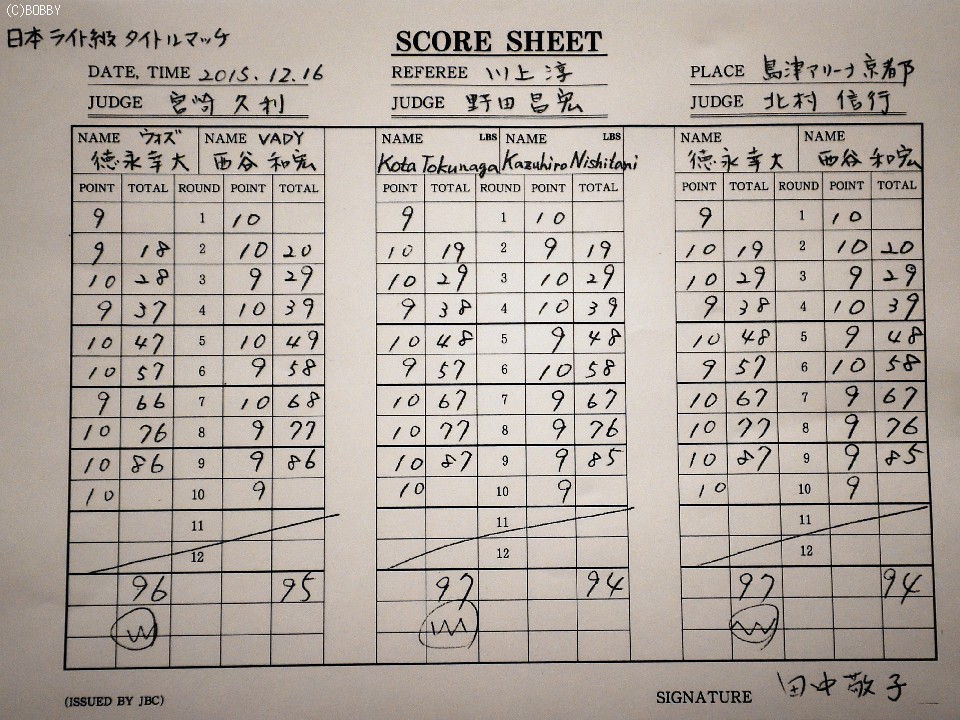 (C)BOBBY
日本ライト級タイトルマッチ
SCORE SHEET
DATE, TIME 2015.12.16 REFEREE 川上淳 PLACE 島津アリーナ京都
JUDGE 宮崎久利 JUDGE 野田昌宏 JUDGE 北村信行
NAME ウォズ NAME VADY NAME LBS NAME LBS NAME NAME
徳永幸大 西谷和宏 Kota Tokunaga Kazuhiro Nishitani 徳永幸大 西谷和宏
POINT TOTAL ROUND POINT TOTAL POINT TOTAL ROUND POINT TOTAL POINT TOTAL ROUND POINT TOTAL
9 1 10 9 1 10 9 1 10
9 18 2 10 20 10 19 2 9 19 10 19 2 10 20
10 28 3 9 29 10 29 3 10 29 10 29 3 9 29
9 37 4 10 39 9 38 4 10 39 9 38 4 10 39
10 47 5 10 49 10 48 5 9 48 10 48 5 9 48
10 57 6 9 58 9 57 6 10 58 9 57 6 10 58
9 66 7 10 68 10 67 7 9 67 10 67 7 9 67
10 76 8 9 77 10 77 8 9 76 10 77 8 9 76
10 86 9 9 86 10 87 9 9 85 10 87 9 9 85
10 10 9 10 10 9 10 10 9
11 11 11
12 12 12
96 95 97 94 97 94
W W W
(ISSUED BY JBC) SIGNATURE 田中敬子